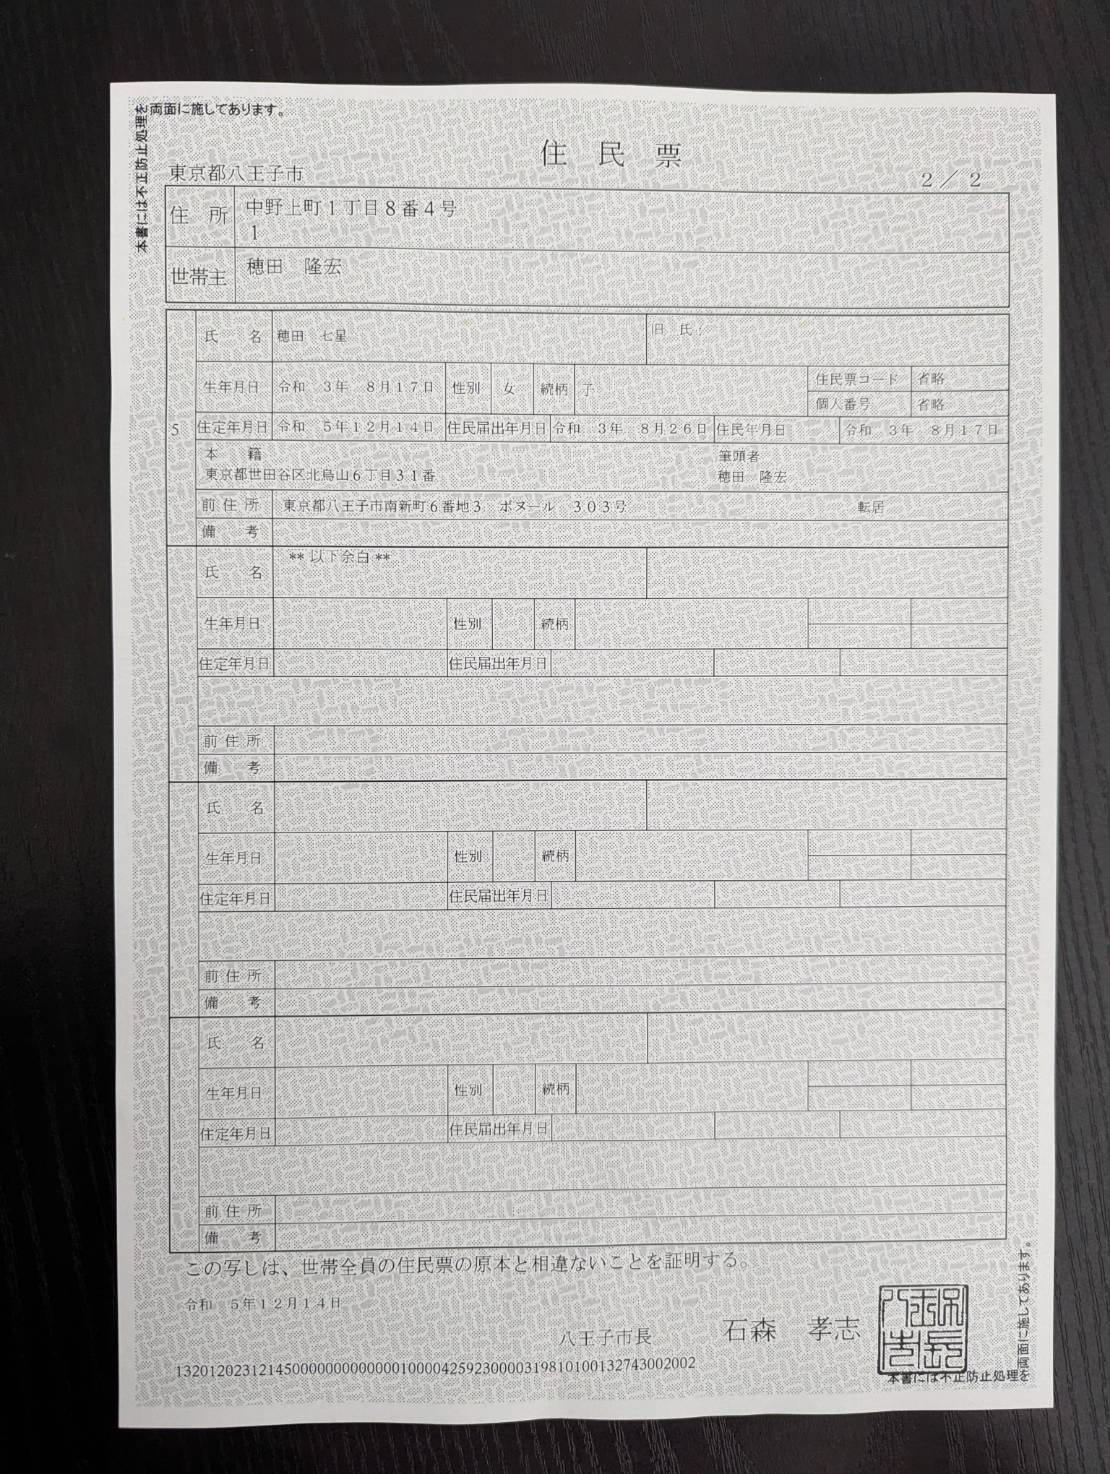 本書には不正防止処理を両面に施してあります。
住民票
東京都八王子市
2／2
住所 中野上町1丁目8番4号
1
世帯主 穂田 隆宏
5
氏名 穂田 七星 旧氏:
生年月日 令和 3年 8月17日 性別 女 続柄 子 住民票コード 省略
個人番号 省略
住定年月日 令和 5年12月14日 住民届出年月日 令和 3年 8月26日 住民年月日 令和 3年 8月17日
本籍 筆頭者
東京都世田谷区北烏山6丁目31番 穂田 隆宏
前住所 東京都八王子市南新町6番地3 ボヌール 303号 転居
備考
氏名 ** 以下余白 **
生年月日 性別 続柄
住定年月日 住民届出年月日
前住所
備考
氏名
生年月日 性別 続柄
住定年月日 住民届出年月日
前住所
備考
氏名
生年月日 性別 続柄
住定年月日 住民届出年月日
前住所
備考
この写しは、世帯全員の住民票の原本と相違ないことを証明する。
令和 5年12月14日
八王子市長 石森 孝志
本書には不正防止処理を両面に施してあります。